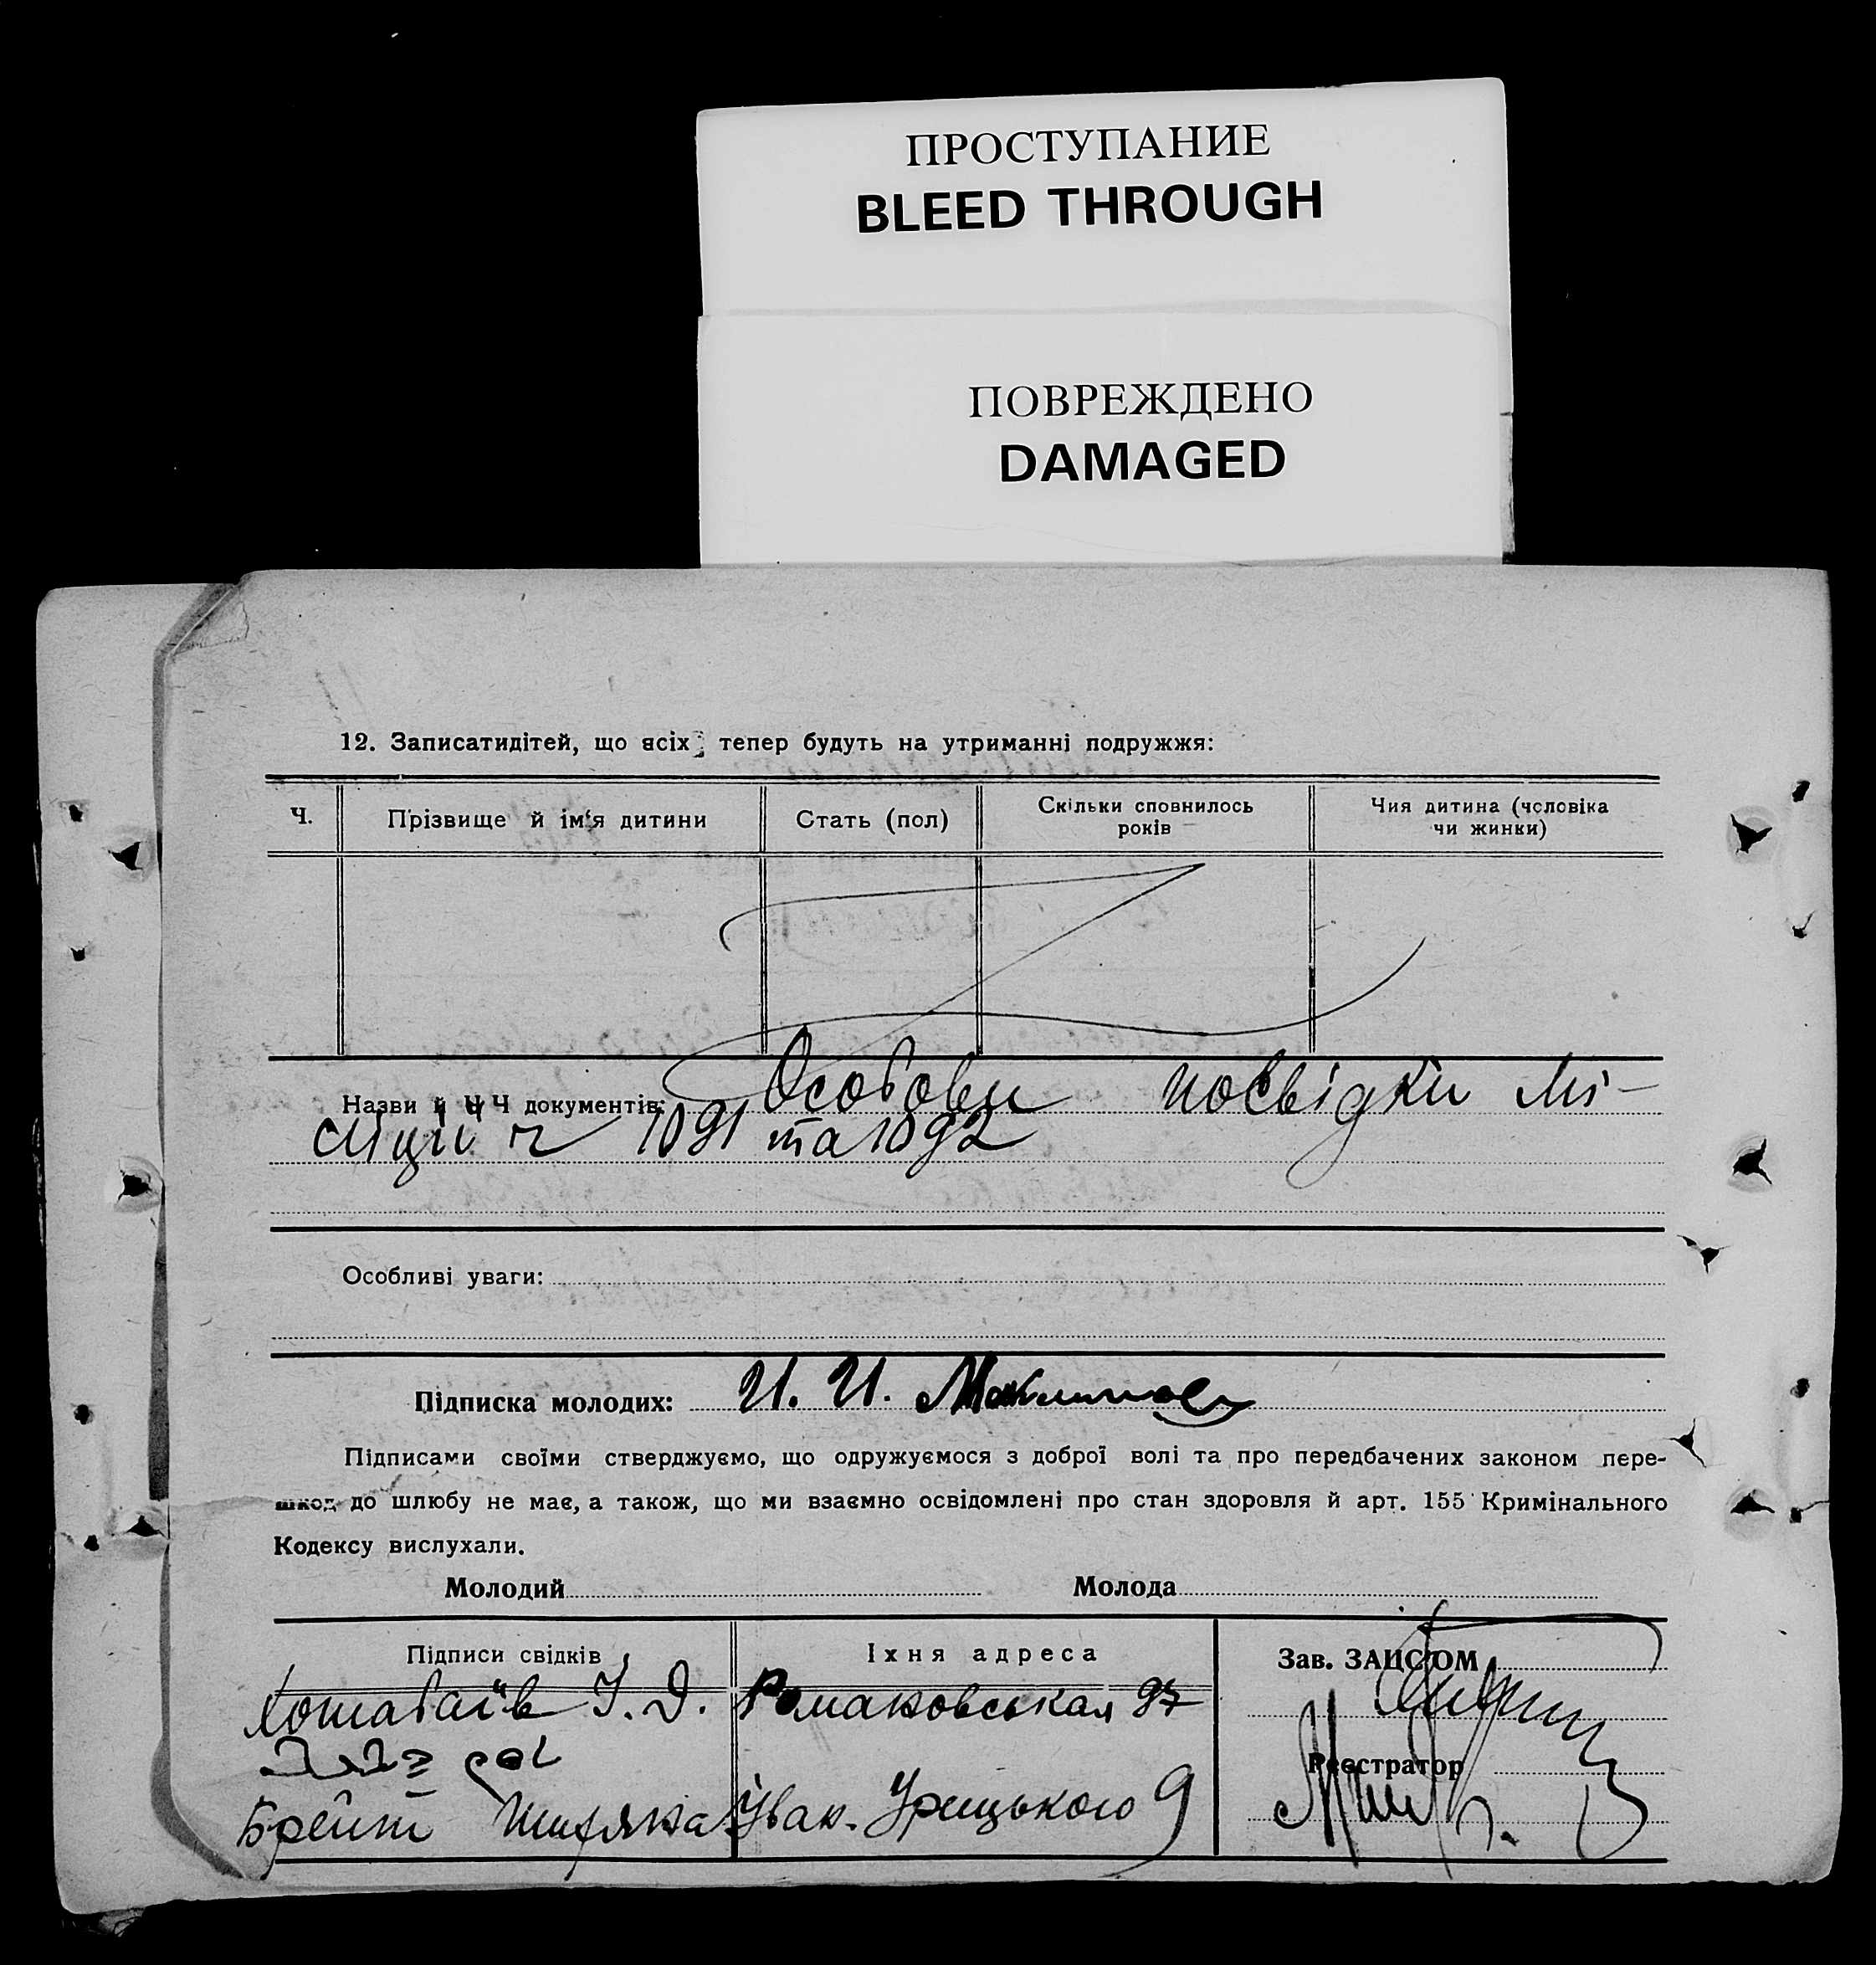 ПРОСТУПАНИЕ
BLEED THROUGH
ПОВРЕЖДЕНО
DAMAGED
12. Записатидітей, що всіх тепер будуть на утриманні подружжя:
Ч.
Прізвище й ім'я дитини
Стать (пол)
Скільки сповнилось
років
Чия дитина (чсловіка
чи жинки)
Назви й Ч Ч документів: Особови посвідки мі-
ліціи ч 1091 та 1092
Особливі уваги:
Підписка молодих: И. И.
Підписами своїми стверджуємо, що одружуємося з доброї волі та про передбачених законом пере-
шкод до шлюбу не має, а також, що ми взаємно освідомлені про стан здоровля й арт. 155 Кримінального
Кодексу вислухали.
Молодий
Молода
Підписи свідків
Їхня адреса
Зав. ЗАЦСОМ
Романовськая 97
Реєстратор
Брейт
Урицького 9